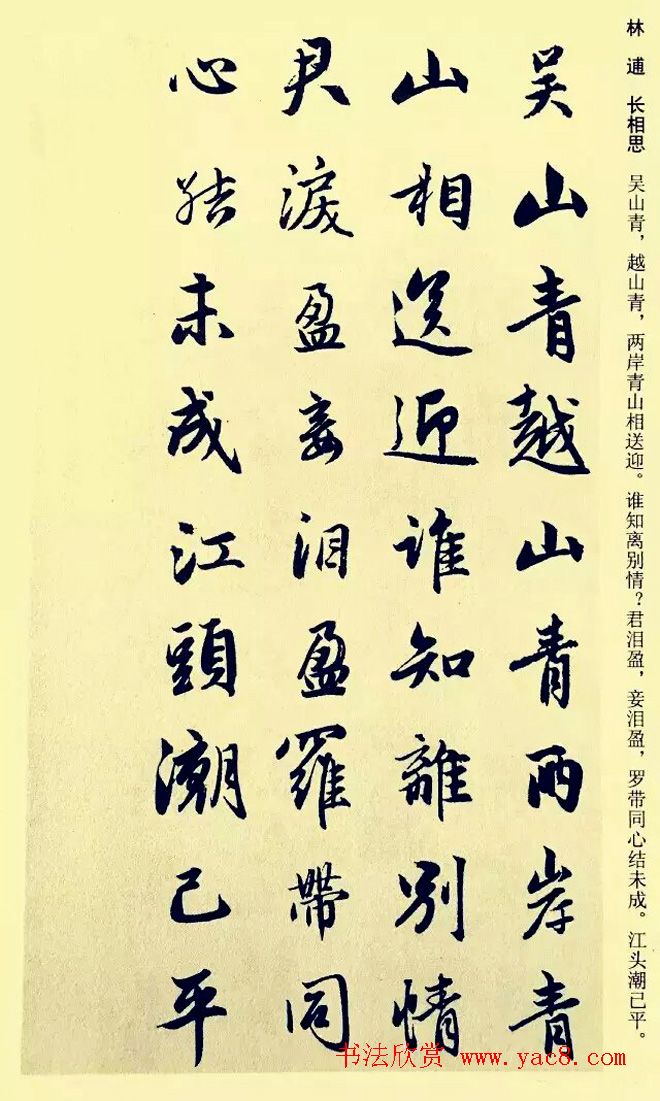 林逋 长相思 吴山青，越山青，两岸青山相送迎。谁知离别情？君泪盈，妾泪盈，罗带同心结未成。江头潮已平。
吴山青越山青两岸青
山相送迎誰知離别情
君淚盈妾泪盈羅帶同
心結未成江頭潮已平
书法欣赏 www.yac8.com